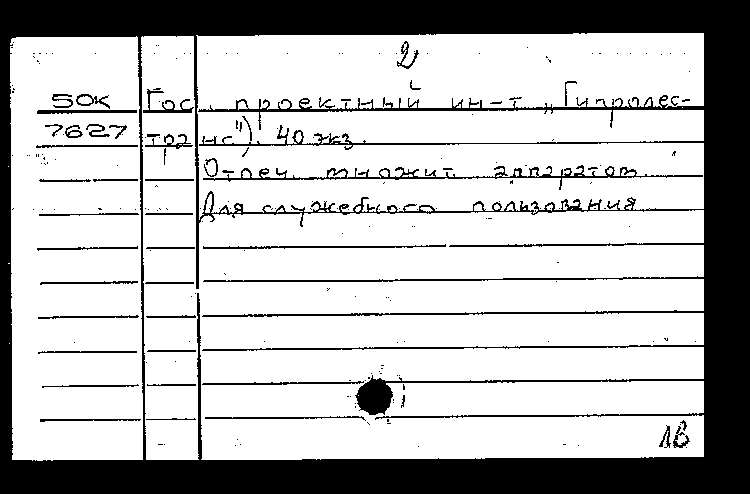 2
50К Гос. проектный ин-т „Гипролес-
7627 транс"). 40 экз.
Отпеч. множит. аппаратом.
Для служебного пользования
1В